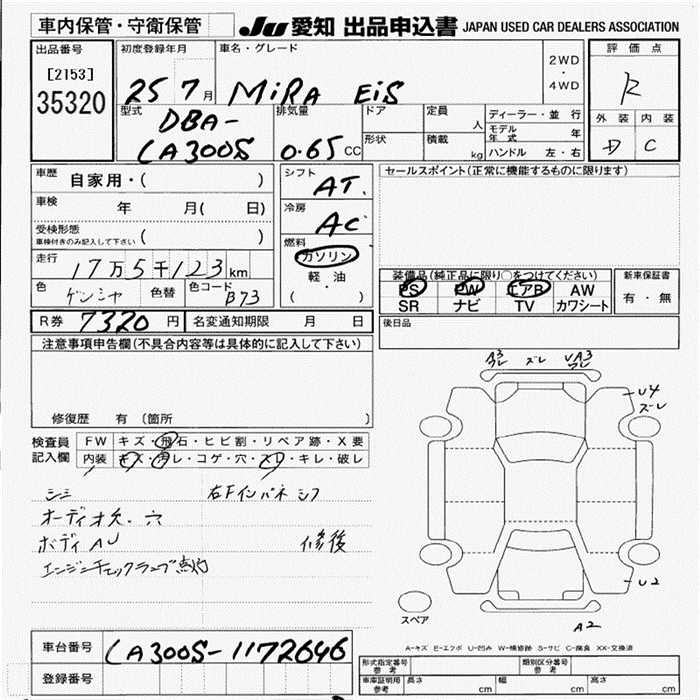 車内保管・守衛保管
JU 愛知 出品申込書 JAPAN USED CAR DEALERS ASSOCIATION
出品番号
[2153]
35320
初度登録年月
25 7月
車名・グレード
MiRA EiS
2WD
・
4WD
評価点
R
外装 内装
D C
型式
DBA-
LA300S
排気量
0.65 CC
ドア
形状
定員
人
積載
kg
ディーラー・並行
モデル年式 年
ハンドル 左・右
車歴
自家用・( )
車検 年 月( 日)
受検形態
車検付きのみ記入して下さい ( )
走行
17万5千123km
色
ゲンシャ
色替
色コード
B73
シフト
AT.
冷房
AC
燃料
ガソリン
軽・油
( ・ )
セールスポイント(正常に機能するものに限ります)
装備品(純正品に限り○をつけてください)
PS PW エアB AW
SR ナビ TV カワシート
新車保証書
有・無
R券 7320円
名変通知期限 月 日
後日品
注意事項申告欄(不具合内容等は具体的に記入して下さい)
修復歴 有 〔箇所 〕
検査員記入欄
FW キズ・飛石・ヒビ割・リペア跡・X要
内装 キズ・汚レ・コゲ・穴・スリ・キレ・破レ
シミ 右Fインパネ シフ
オーディオ欠.穴
ボディ AU 修後
エンジンチェックランプ点灯
A3 ズレ VA3
U4
ズレ
U2
A2
スペア
A-キズ E-エクボ U-凹み W-補修跡 S-サビ C-腐食 XX-交換済
車台番号 LA300S-1172646
登録番号
形式指定番号
参考
類別区分番号
参考
車庫証明用
参考
長さ cm 幅 cm 高さ cm